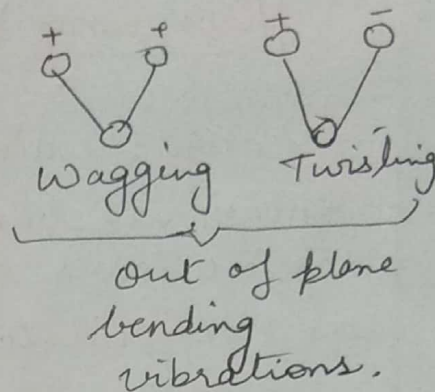 + + + -
Wagging Twisting
out of plane
bending
vibrations.